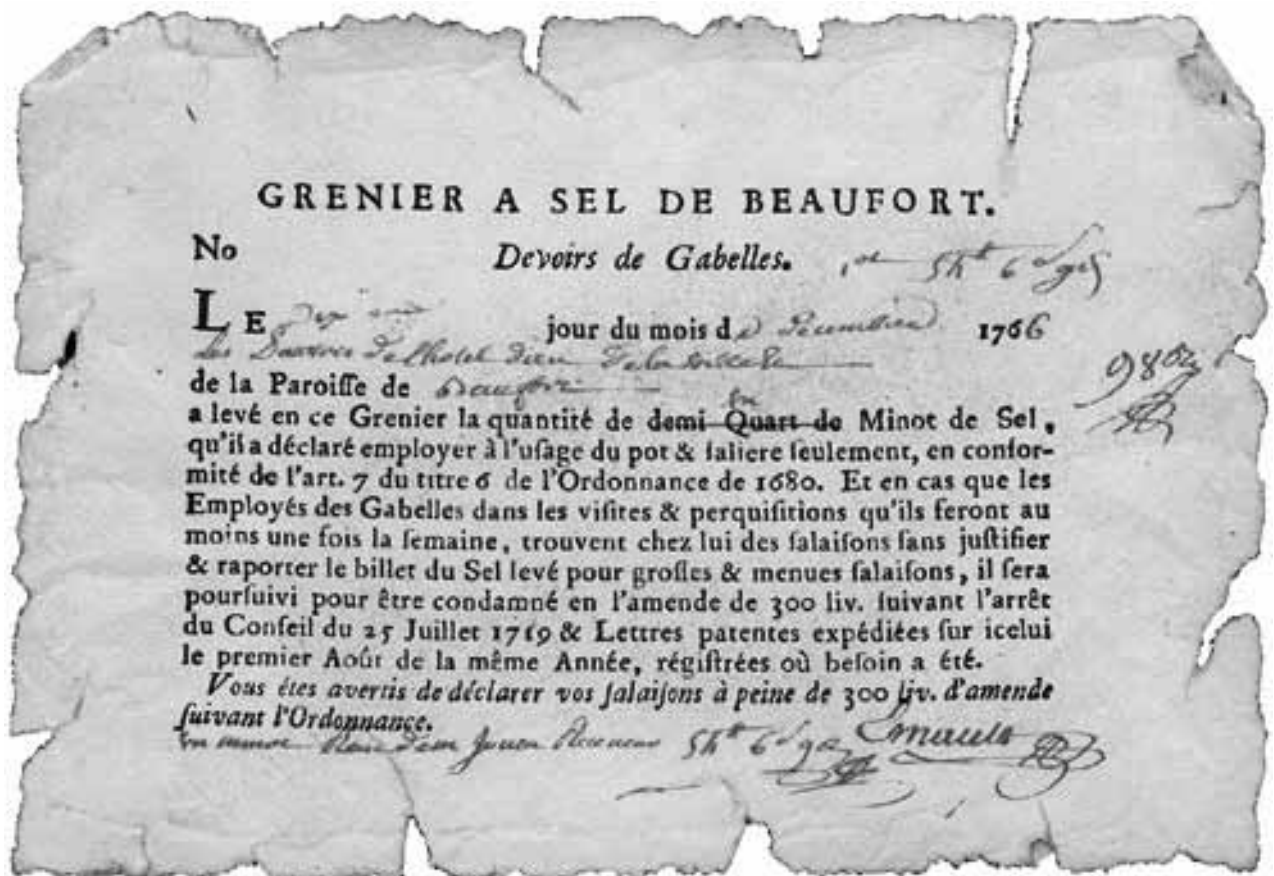 GRENIER A SEL DE BEAUFORT.
No Devoirs de Gabelles.
LE jour du mois de Decembre 1766
Les Pauvres De l'hotel Dieu De la Ville de
de la Paroiſſe de Beaufort
a levé en ce Grenier la quantité de demi Quart de un Minot de Sel,
qu'il a déclaré employer à l'uſage du pot & ſaliere ſeulement, en confor-
mité de l'art. 7 du titre 6 de l'Ordonnance de 1680. Et en cas que les
Employés des Gabelles dans les viſites & perquiſitions qu'ils feront au
moins une fois la ſemaine, trouvent chez lui des ſalaiſons ſans juſtifier
& raporter le billet du Sel levé pour groſſes & menues ſalaiſons, il ſera
pourſuivi pour être condamné en l'amende de 300 liv. ſuivant l'arrêt
du Conſeil du 25 Juillet 1719 & Lettres patentes expédiées ſur icelui
le premier Août de la même Année, régiſtrées où beſoin a été.
Vous êtes avertis de déclarer vos ſalaiſons à peine de 300 liv. d'amende
ſuivant l'Ordonnance.
un minot